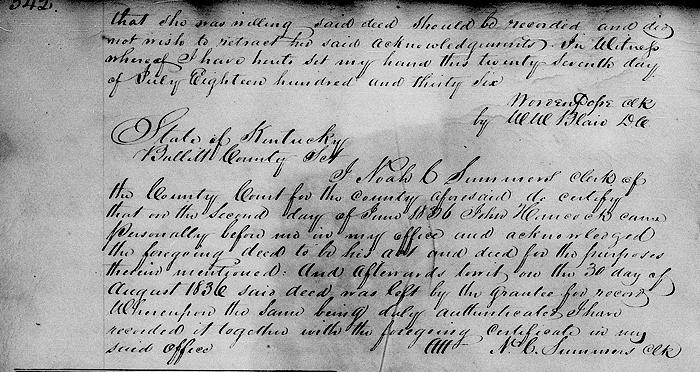 342.
that she was willing said deed should be recorded and did
not wish to retract her said acknowledgments. In Witness
whereof I have hereto set my hand this twenty seventh day
of July Eighteen hundred and thirty Six
Worden Pope clk
by W W Blair DC
State of Kentucky
Bullitt County Sct
I Noah C Summers clerk of
the County Court for the county aforesaid do certify
that on the second day of June 1836 John Hancock came
personally before me in my office and acknowledged
the foregoing deed to be his act and deed for the purposes
therein mentioned: And afterwards towit on the 30 day of
August 1836 said deed was left by the grantee for record
Whereupon the same being duly authenticated I have
recorded it together with the foregoing certificate in my
said office Att N. C. Summers clk